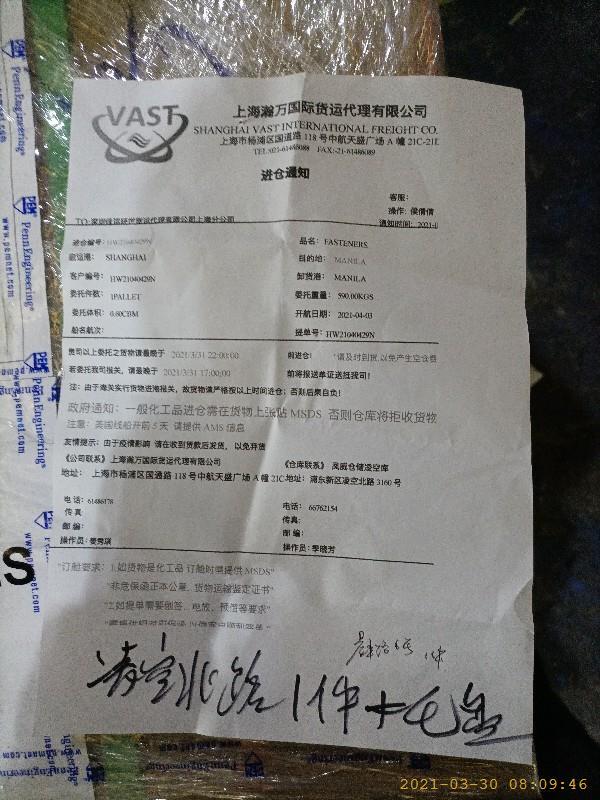 VAST
上海瀚万国际货运代理有限公司
SHANGHAI VAST INTERNATIONAL FREIGHT CO.
上海市杨浦区国通路 118 号中航天盛广场 A 幢 21C-21E
TEL:021-61486088 FAX:-21-61486089
进仓通知
客服:
操作: 侯倩倩
通知时间: 2021-
进仓编号: HW21040429N
品名: FASTENERS
启运港: SHANGHAI
目的地: MANILA
客户编号: HW21040429N
卸货港: MANILA
委托件数: 1PALLET
委托重量: 590.00KGS
委托体积: 0.60CBM
开航日期: 2021-04-03
船名航次:
提单号: HW21040429N
贵司以上委托之货物请最晚于 2021/3/31 22:00:00 前进仓: "请及时到货,以免产生空仓费
若委托我司报关, 请最晚于 2021/3/31 17:00:00 前将报送单证送抵我司!
注: 由于海关实行货物进港报关, 故货物请严格按以上时间进仓; 否则后果自负!
政府通知: 一般化工品进仓需在货物上张贴 MSDS 否则仓库将拒收货物
注意: 美国线船开前 5 天 请提供 AMS 信息
友情提示: 由于疫情影响 请在收到货款后发货, 以免弃货
《公司联系》上海瀚万国际货运代理有限公司
《仓库联系》 凤威仓储凌空库
地址: 上海市杨浦区国通路 118 号中航天盛广场 A 幢 21C
地址: 浦东新区凌空北路 3160 号
电话: 61486178
电话: 66762154
传真
传真:
邮编:
邮编:
操作员: 娄秀琪
操作员: 季晓芳
"订舱要求: 1.如货物是化工品 订舱时需提供 MSDS"
"非危保函正本公章, 货物运输鉴定证书"
"2.如提单需要倒签, 电放, 预借等要求"
凌空北路 1件
PEM
PennEngineering®
www.pemnet.com
2021-03-30 08:09:46